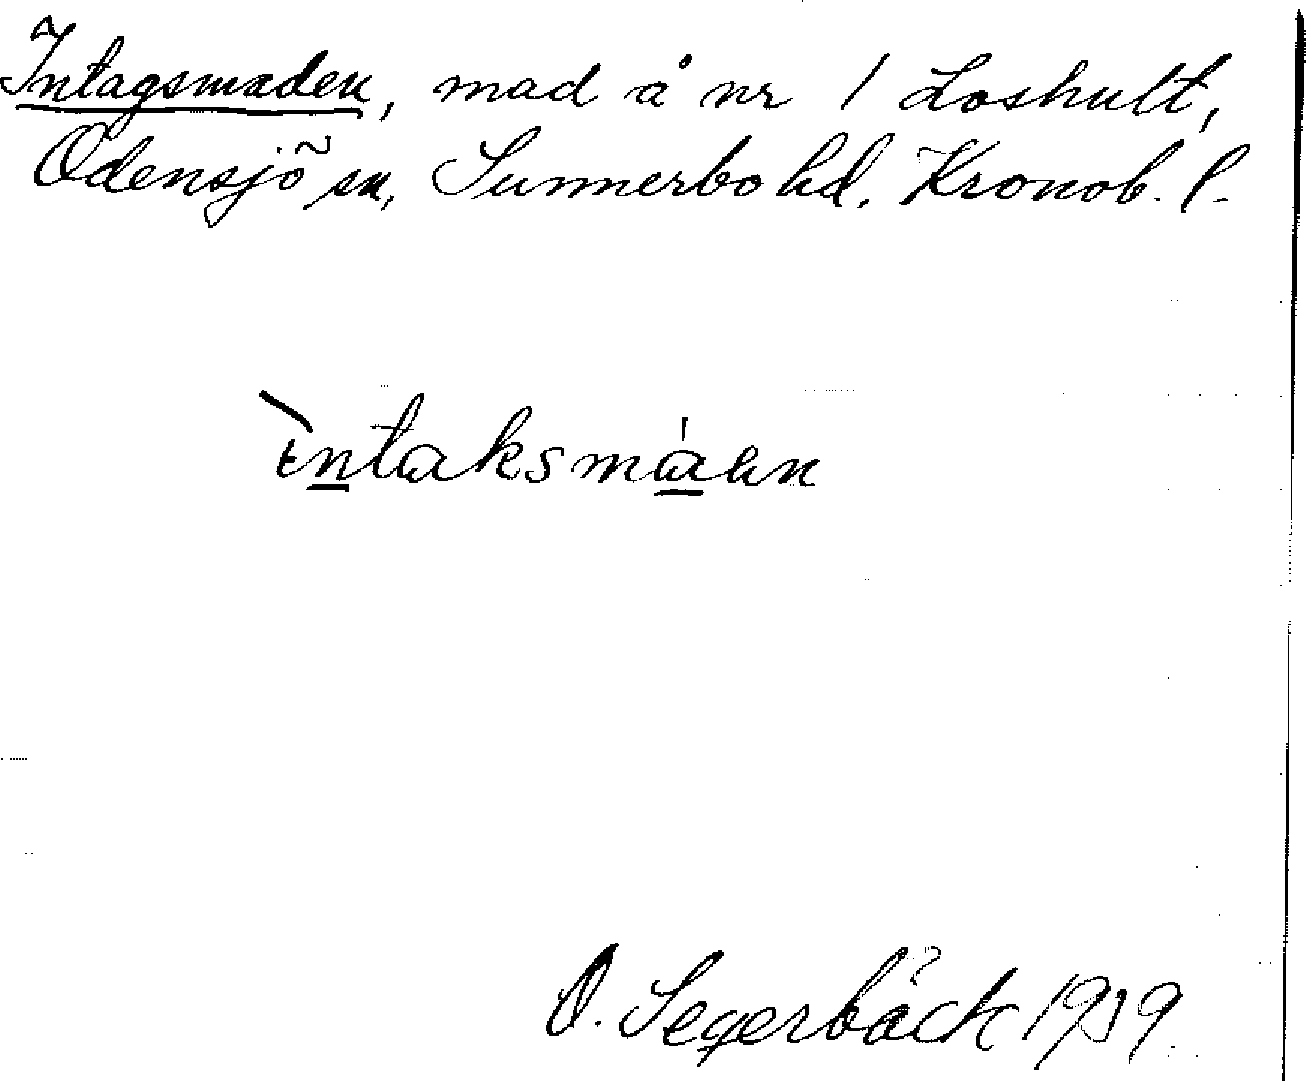 Intagsmaden, mad å nr 1 Loshult,
Odensjö sn, Sunnerbo hd. Kronob. l.
ìntaksmáen
O. Segerbäck 1939